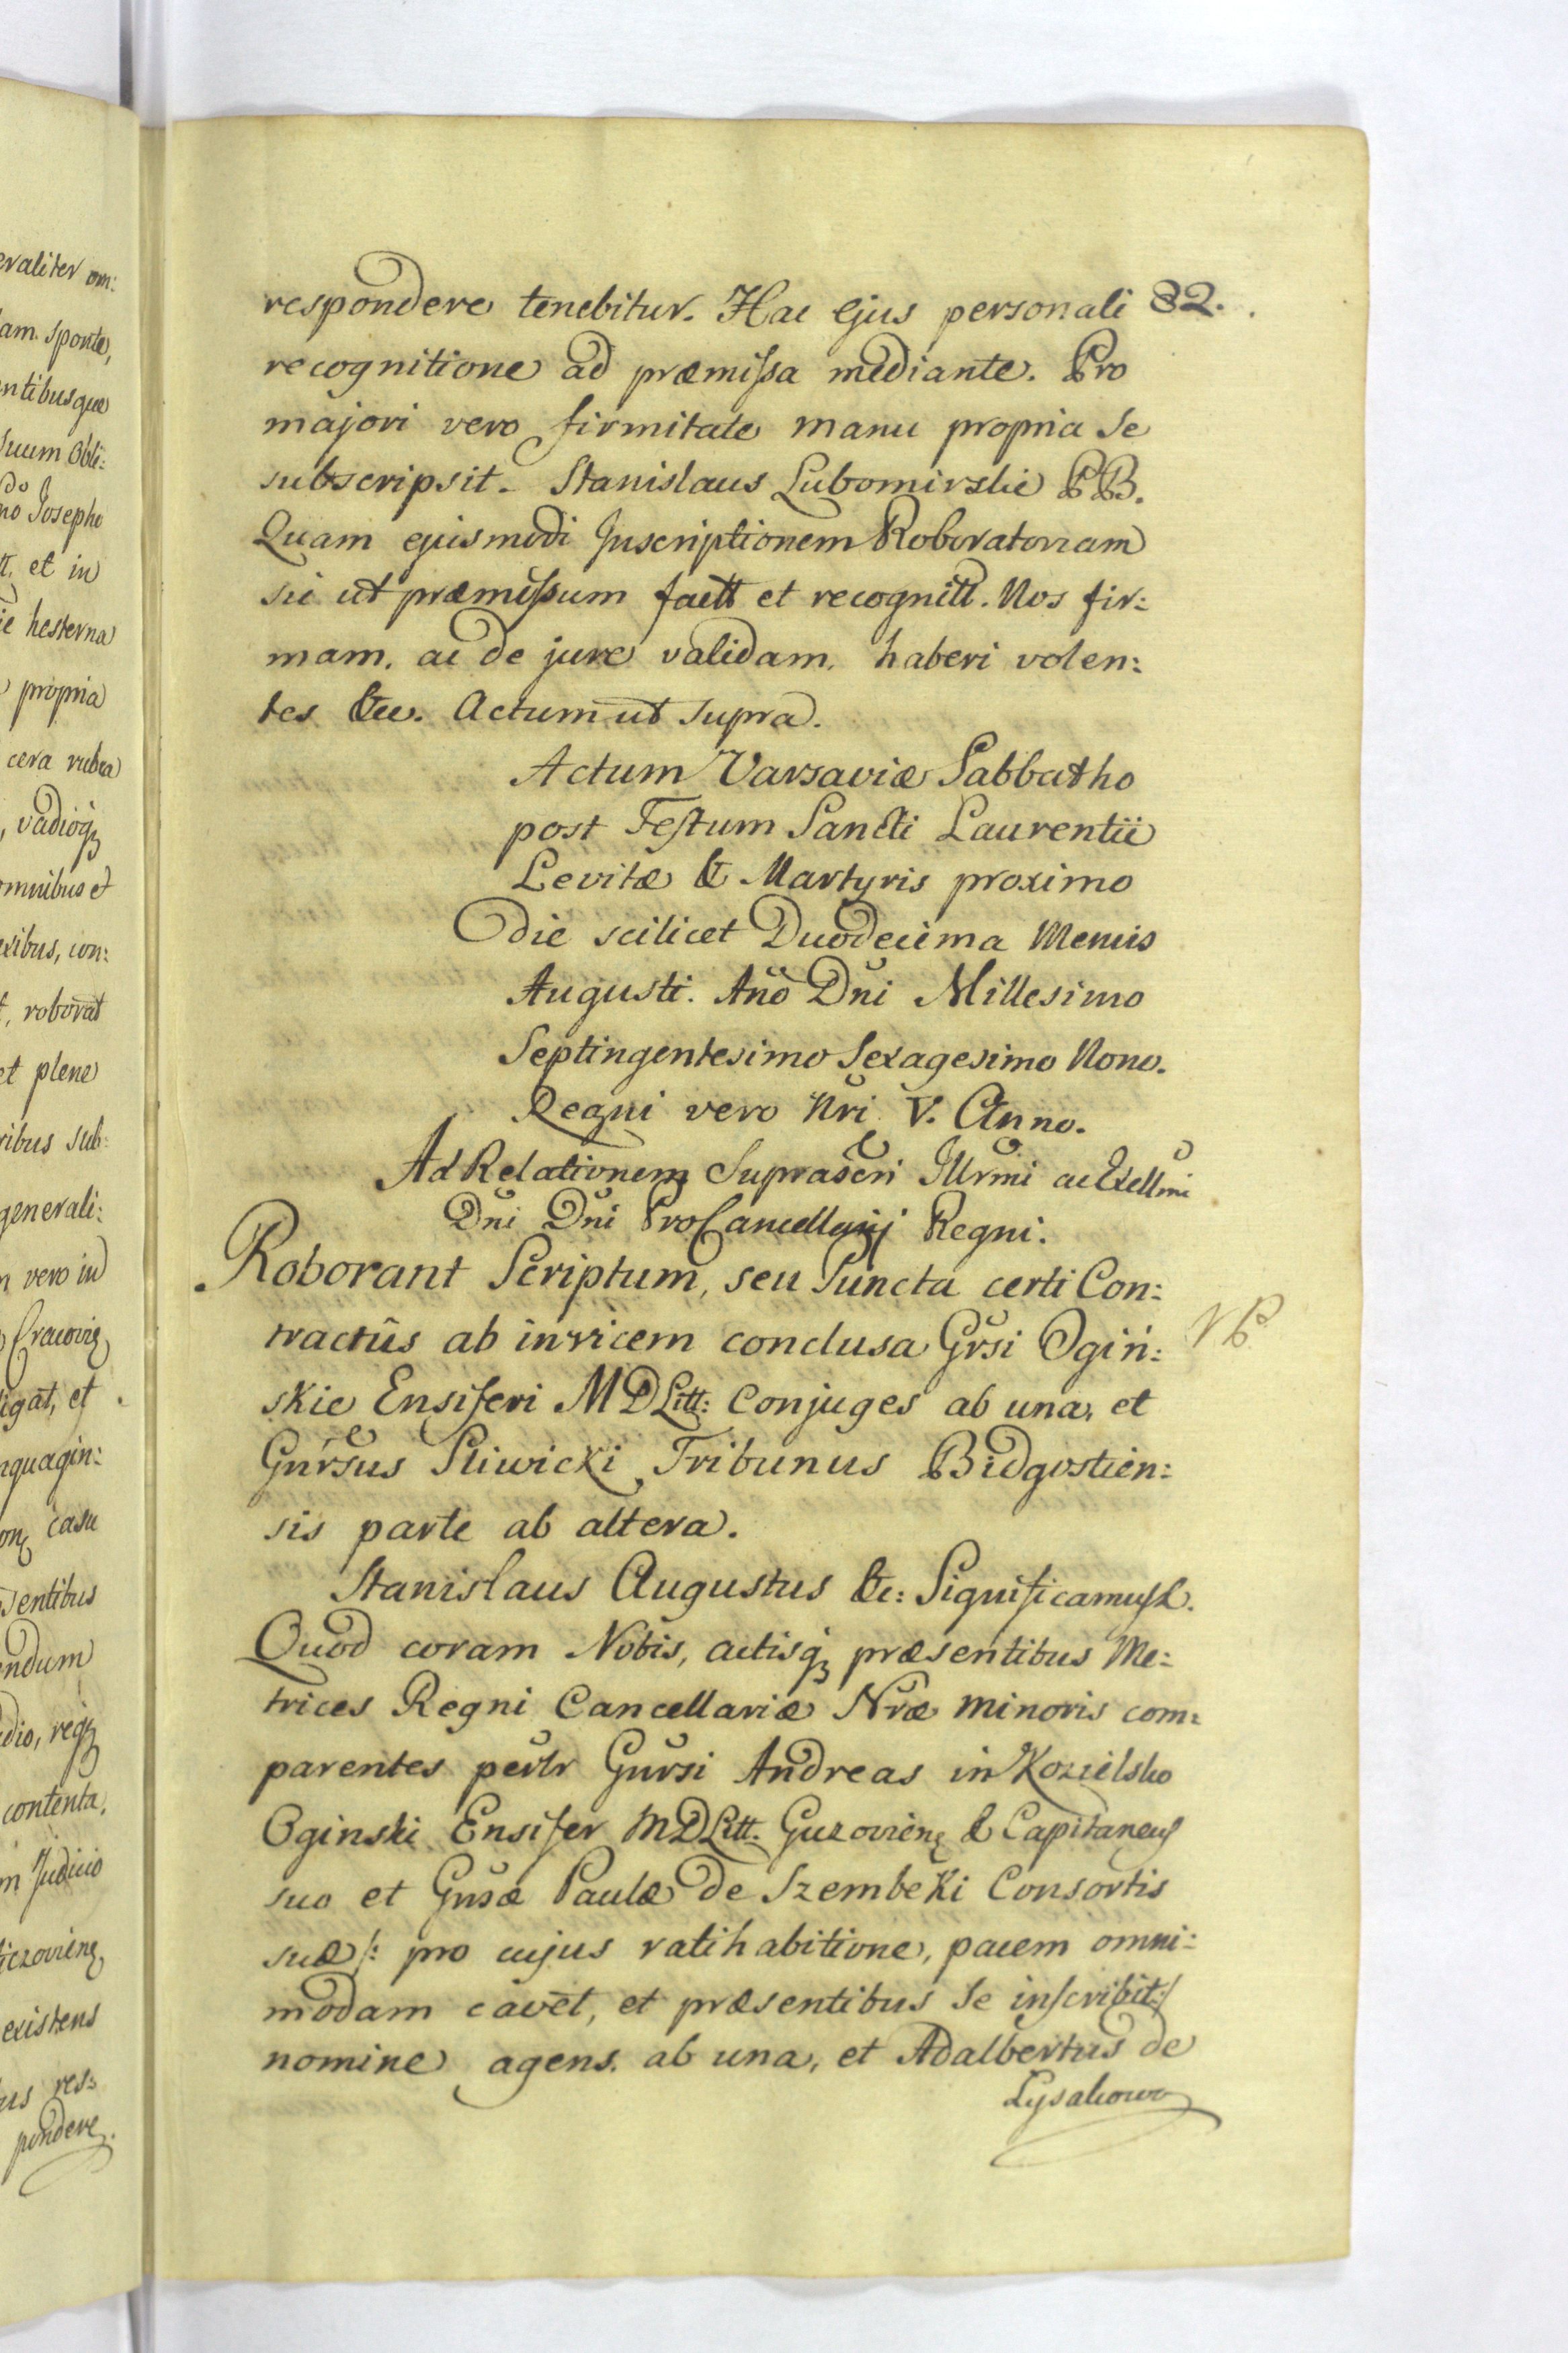 eraliter om:
am. sponte,
ntibusque
suum Obli:
no Josepho
tt. et in
ie hesterna
propria
cera rubra
, vadioq
omnibus et
eribus, con:
t, roborat
et plene
ribus sub:
generali:
m vero in
Cracovię
ligat, et
nquagin:
casu
sentibus
endum
dio, req
contenta,
m Judicio
iczovienę
existens
us res:
pondere.
respondere tenebitur. Hac ejus personali 82.
recognitione ad præmissa mediante. Pro
majori vero firmitate manu propria se
subscripsit. Stanislaus Lubomirski PB.
Quam ejusmodi Inscriptionem Roboratoriam
sic ut præmissum factt et recognitt. Nos fir:
mam. ac de jure validam. haberi volen:
tes &cc. Actum ut supra.
Actum Varsaviæ Sabbatho
post Festum Sancti Laurentii
Levitæ & Martyris proximo
die scilicet Duodecima Mensis
Augusti. Año Dñi Millesimo
Septingentesimo Sexagesimo Nono.
Regni vero Nri V. Anno.
Ad Relationem Suprascri Illrmi ac Exellmi
Dni Dni ProCancellarij Regni.
Roborant Scriptum, seu Puncta certi Con:
tractûs ab invicem conclusa Grsi Ogiń:
skie Ensiferi MDLitt: Conjuges ab una, et
Gnrsus Sliwicki Tribunus Bidgostien:
sis parte ab altera.
Stanislaus Augustus &c: Significamus &.
Quod coram Nobis, actisq præsentibus Me:
trices Regni Cancellariæ Nræ minoris com:
parentes perlr Gnrsi Andreas in Kozielsko
Oginski Ensifer MDLitt. Guzovienę & Capitaneus
suo et Gnsæ Paulæ de Szembeki Consortis
suæ /: pro cujus ratihabitione, pacem omni:
modam cavet, et præsentibus se inscribit:/
nomine agens. ab una, et Adalbertus de
Lysakowo